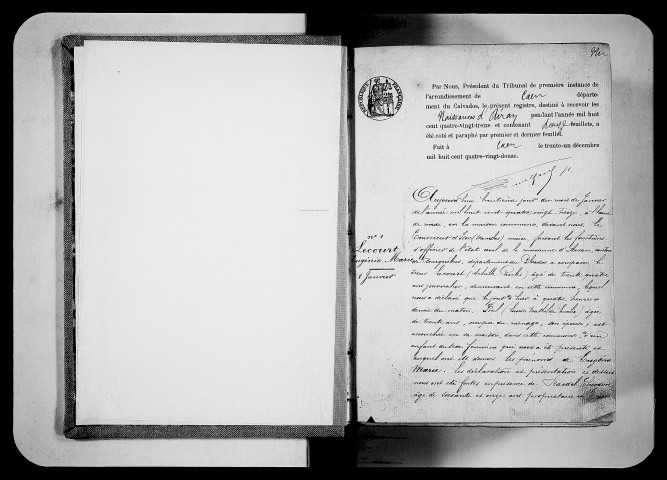 Par Nous, Président du Tribunal de première instance de
l'arrondissement de Caen départe-
ment du Calvados, le présent registre, destiné à recevoir les
Naissances d'Airan pendant l'année mil huit
cent quatre-vingt-treize et contenant douze feuillets, a
été coté et paraphé par premier et dernier feuillet.
Fait à Caen le trente-un décembre
mil huit cent quatre-vingt-douze.
RÉPUBLIQUE FRANÇAISE
n° 1
Lecourt
Eugénie Marie
8 Janvier
Aujourd'hui huitième jour du mois de Janvier
de l'année mil huit cent quatre vingt treize, à l'heure
de midi, en la maison commune, devant nous, Le
maire, faisant les fonctions
d'officier de l'état civil de la commune d'Airan, canton
de Bourguébus, département du Calvados a comparu le
sieur Lecourt (Achille) âgé de trente quatre
ans journalier, demeurant en cette commune, lequel
nous a déclaré que le jour d'hier à quatre heures et
demie du matin, âgée
de trente ans, occupée du ménage, son épouse, est
accouchée en sa maison, dans cette commune, d'un
enfant du sexe féminin qui nous a été présenté et
auquel ont été donnés les prénoms de Eugénie
Marie. Les déclaration et présentation ci dessus
nous ont été faites en présence de
âgé de soixante et onze ans propriétaire